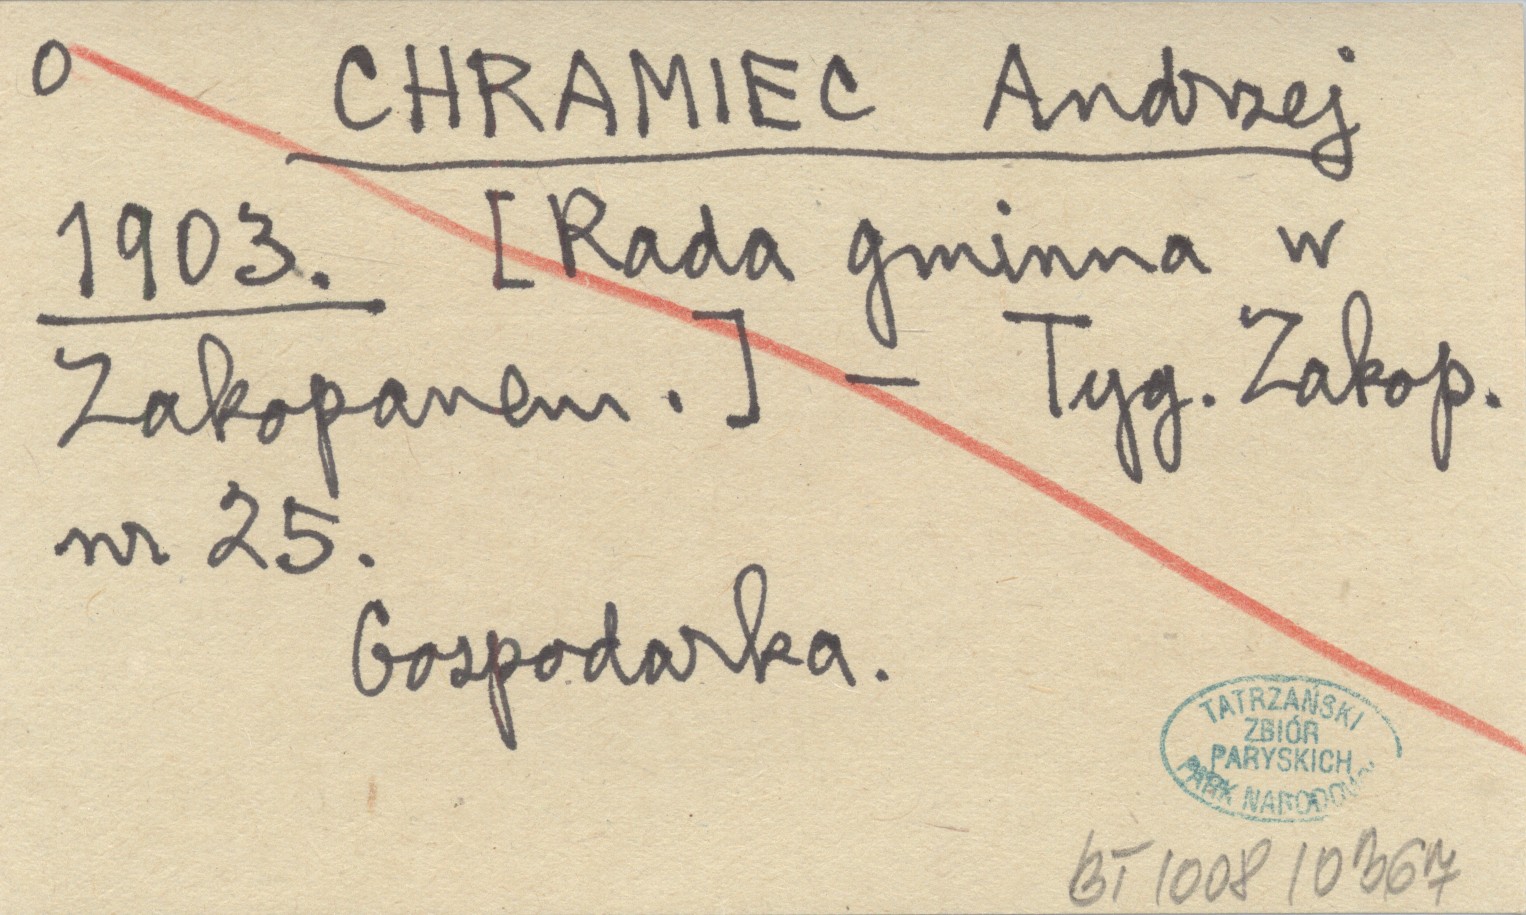 O CHRAMIEC Andrzej
1903. [Rada gminna w
Zakopanem.] — Tyg. Zakop.
nr 25.
Gospodarka.
TATRZAŃSKI
ZBIÓR
PARYSKICH
PARK NARODOWY
BT 1008 10367